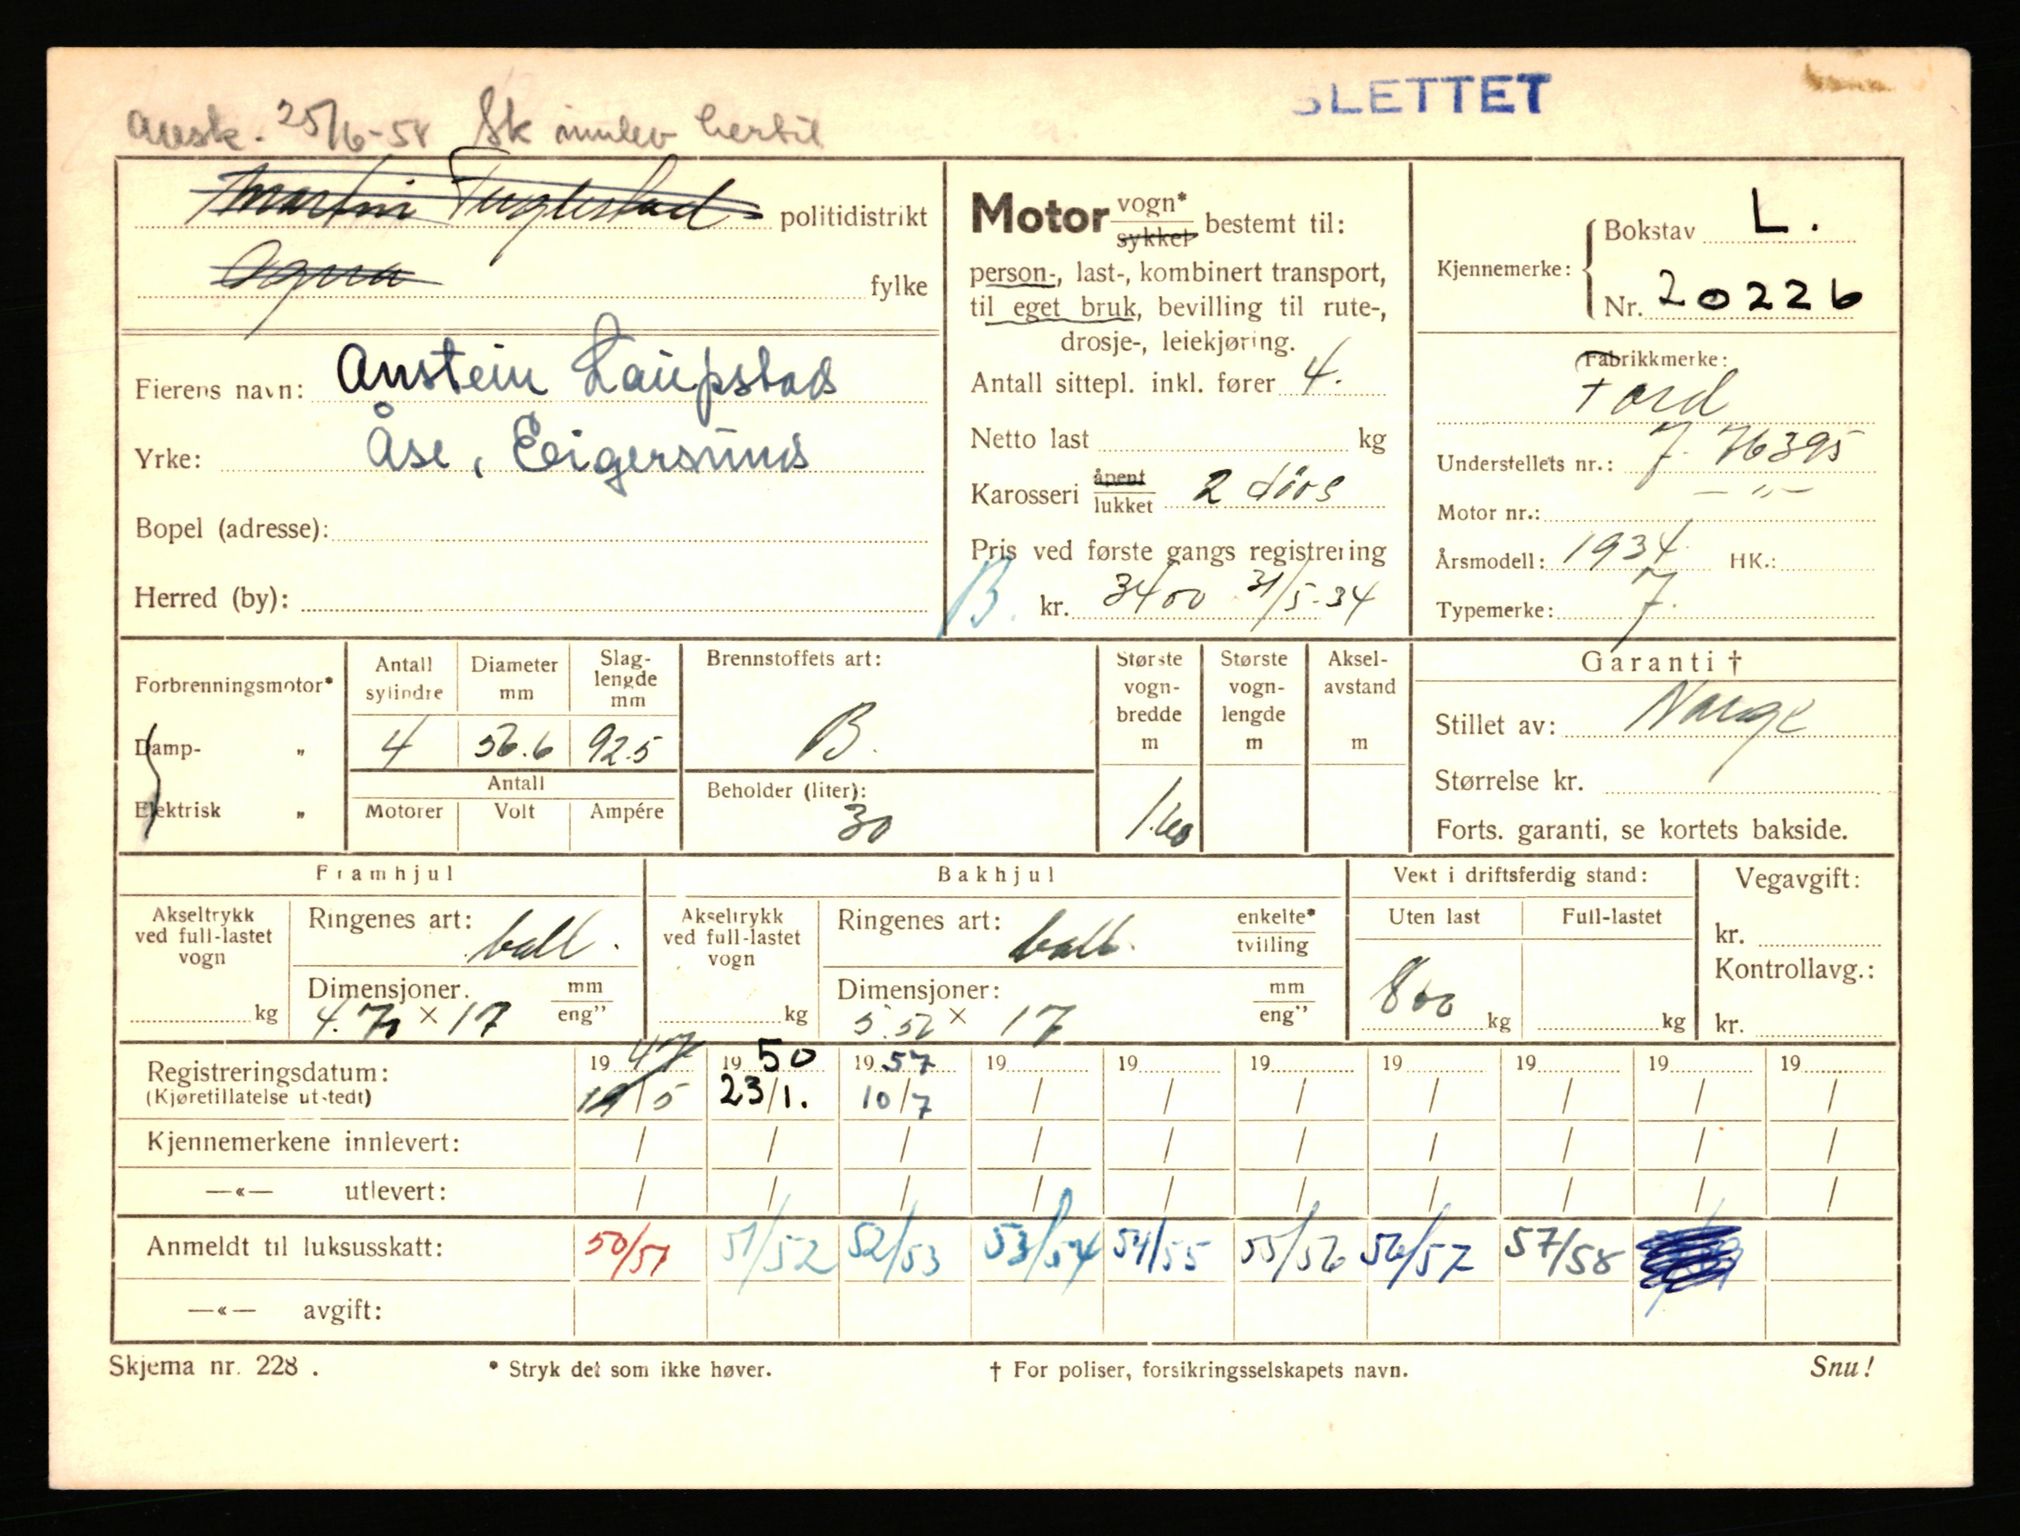 SLETTET
avsk. 25/6-58 Sk innlev hertil
Martin Fuglestad politidistrikt
Ogna fylke
Eierens navn: Anstein Laupstad
Yrke: Åse, Eeigersund
Bopel (adresse):
Herred (by):
Motor vogn* sykkel bestemt til:
person-, last-, kombinert transport,
til eget bruk, bevilling til rute-,
drosje-, leiekjøring.
Antall sittepl. inkl. fører 4.
Netto last kg
Karosseri åpent lukket 2 dörs
Pris ved første gangs registrering
B. kr. 3400 31/5-34
Kjennemerke: Bokstav L.
Nr. 20226
Fabrikkmerke:
Ford
Understellets nr.: 7. 76395
Motor nr.: — „ —
Årsmodell: 1934. HK.:
Typemerke: 7.
Forbrenningsmotor*
Damp- „
Elektrisk „
Antall sylindre Diameter mm Slag-lengde mm
4 56.6 92.5
Antall
Motorer Volt Ampére
Brennstoffets art:
B.
Beholder (liter):
30
Største vogn-bredde m Største vogn-lengde m Aksel-avstand m
1.60
Garanti †
Stillet av: Norge
Størrelse kr.
Forts. garanti, se kortets bakside.
Framhjul
Akseltrykk ved full-lastet vogn kg
Ringenes art: ball.
Dimensjoner. mm eng"
4.70 × 17
Bakhjul
Akseltrykk ved full-lastet vogn kg
Ringenes art: ball. enkelte* tvilling
Dimensjoner: mm eng"
5.50 × 17
Vekt i driftsferdig stand:
Uten last Full-lastet
800 kg kg
Vegavgift:
kr.
Kontrollavg.:
kr.
Registreringsdatum: 19 47 19 50 19 57 19 19 19 19 19 19 19
(Kjøretillatelse utstedt) 19/5 23/1. 10/7 / / / / / / /
Kjennemerkene innlevert: / / / / / / / / / /
—«— utlevert: / / / / / / / / / /
Anmeldt til luksusskatt: 50/51 51/52 52/53 53/54 54/55 55/56 56/57 57/58
—«— avgift:
Skjema nr. 228 . * Stryk det som ikke høver. † For poliser, forsikringsselskapets navn. Snu!